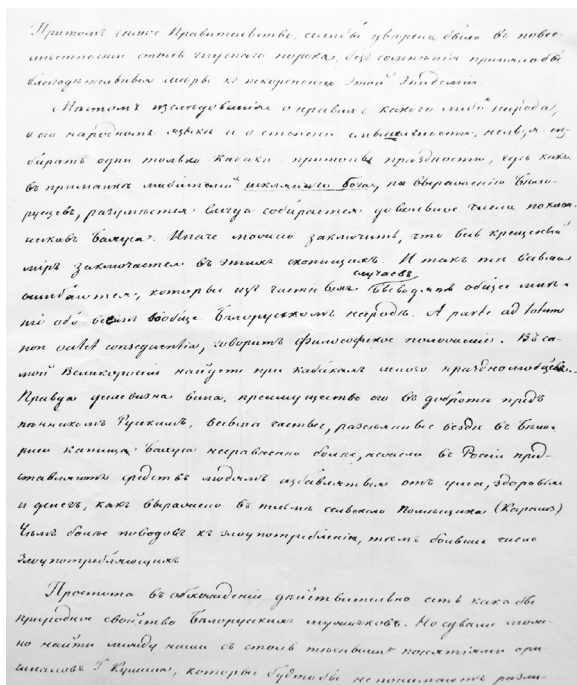 Притомъ самое Правительство, если бы уверена было въ повсе-
мѣстности столь гнуснаго порока, безъ сомнѣнія приняло бы
благодѣтельныя мѣры къ искорененію этой Эпидеміи.
Мѣстомъ изслѣдованія о нравахъ какого либо народа,
о его народномъ языкѣ и о степени смышлености, нельзя из-
бирать одни только кабаки притоны праздности, гдѣ какъ
въ приманкѣ любителей шклянного бога, по выраженію Бѣло-
русцевъ, разумѣется всегда собирается довольное число поклон-
никовъ Бахуса. Иначе можно заключить, что весь крещеный
міръ заключается въ этихъ скопищахъ. И такъ тѣ весьма
случаевъ
ошибаются, которые изъ частныхъ выводятъ общее мнѣ-
ніе обо всемъ вообще Белорусскомъ народѣ. A parte ad totum
non valet consequentia, говоритъ философское положеніе. Въ са-
мой Великороссіи найдете при кабакахъ много праздношатающ.
Правда дешевизна вина, преимущество его въ добротѣ предъ
пѣнникомъ Рускимъ, весьма частые, разсеянные везде въ Бѣло-
русіи капища Бахуса несравненно болѣе, нежели въ Росіи пред-
ставляютъ средствъ людямъ избавляться отъ ума, здоровья
и денегъ, какъ выражено въ письмѣ сельскаго Помѣщика (Карамз)
Чѣмъ болѣе поводовъ къ злоупотребленію, тѣмъ больше число
злоупотребляющихъ.
Простота въ обхожденіи дѣйствительно есть какъ бы
природное свойство Белорусскихъ мужичковъ. Но едвали мож-
но найти между ними съ столь тѣсными понятіями ори-
гиналовъ Г. Кушина, которые будто бы не понимаютъ разли-